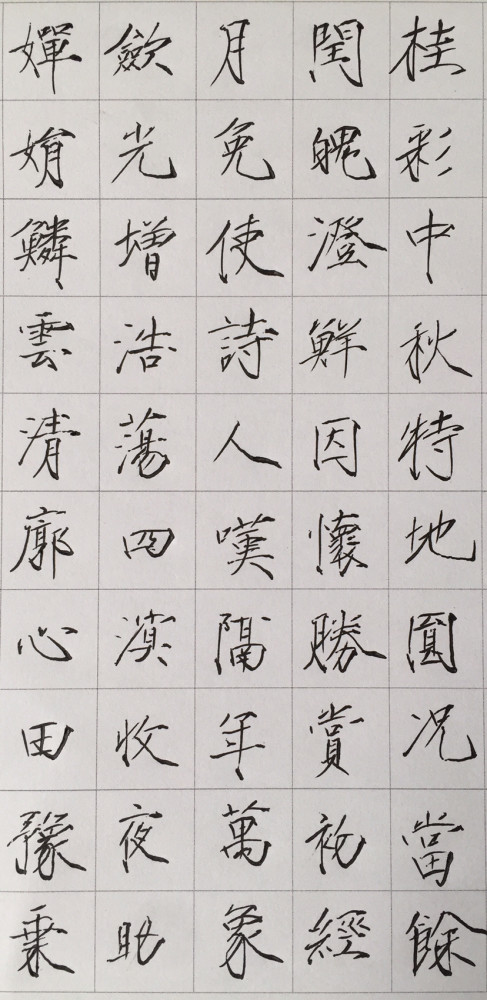 桂彩中秋特地圓况當餘
閏魄澄鮮因懷勝賞初經
月免使詩人嘆隔年萬象
斂光增浩蕩四溟收夜助
嬋娟鱗雲清廓心田豫乘